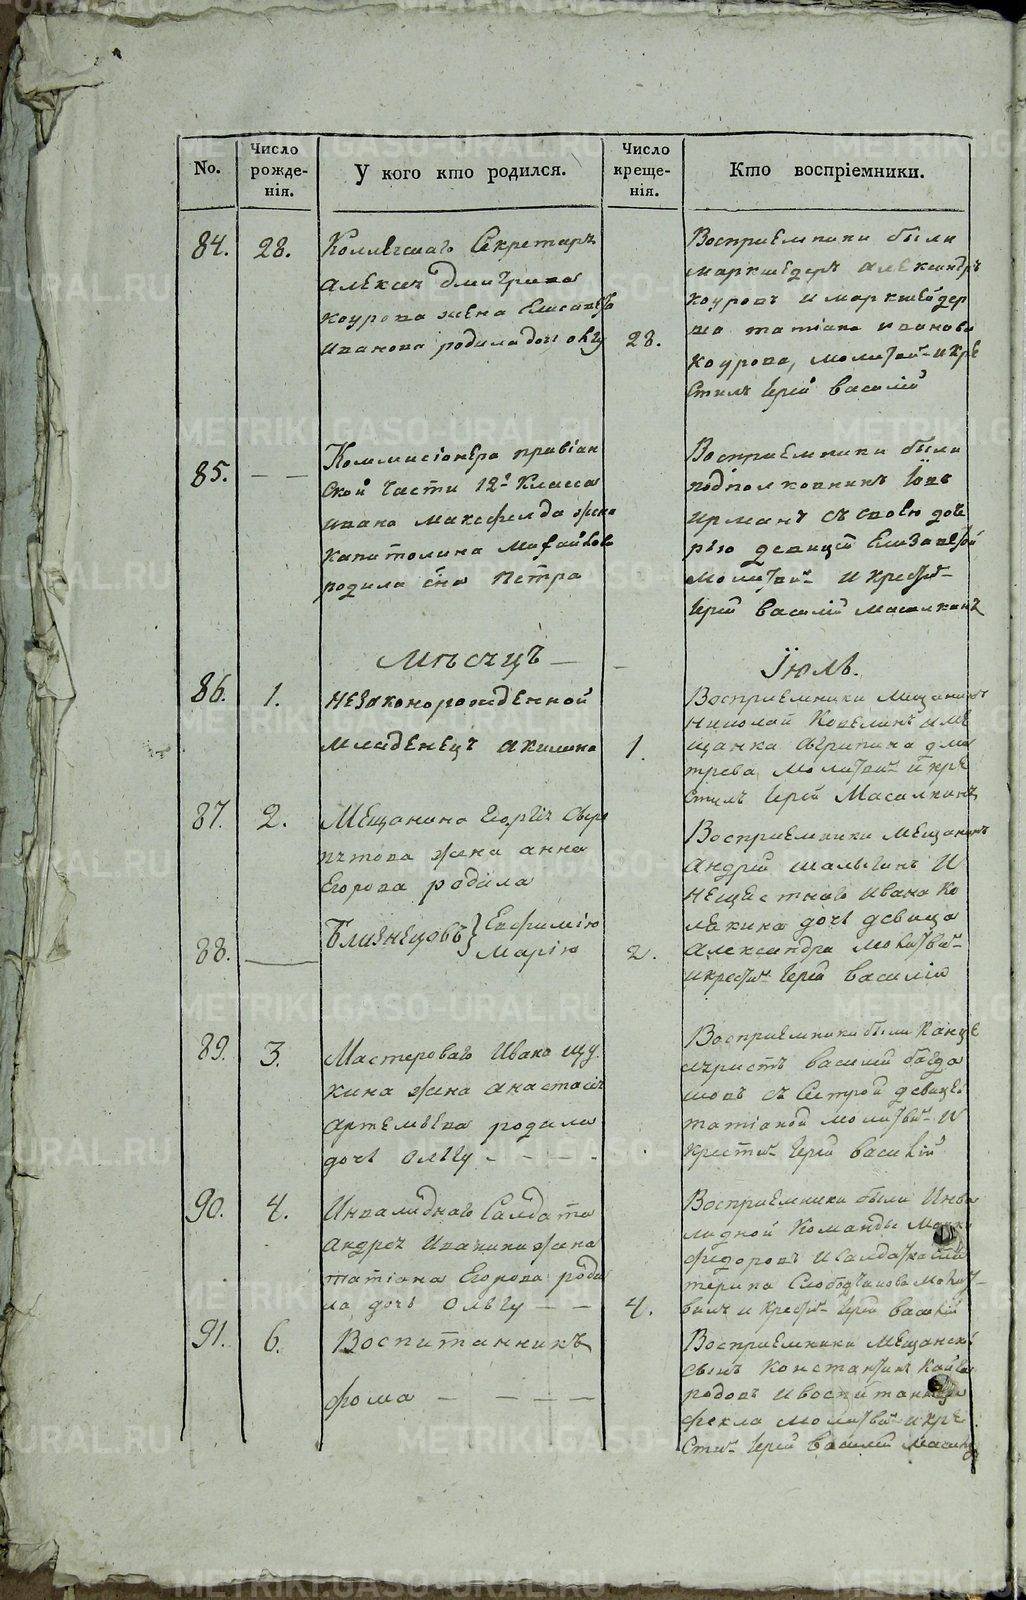 No.
Число рожде-нія.
У кого кто родился.
Число креще-нія.
Кто воспріемники.
84. 28.
Коллежскаго Секретаря
Алексея Дмитриева
Коурова жена Елисавета
Иванова родила дочь Ольгу
28.
Восприемники были
маркшедеръ Александръ
Коуровъ и маркшейдер
ша татіана иванова
Коурова, молитвил и кре
стилъ Іерей василій
85. — —
Коммисіонера провіан
ской части 12го класса
ивана жена
капитолина Михайлова
родила сна петра
Восприемники были
подполковникъ
съ своею доче
рью девицей Елизаветой
молитвил и крестил
Іерей василій Масалкинъ
Мѣсяцъ — — Іюль.
86. 1.
незаконорожденной
младенецъ акилина
1.
Восприемники мещанинъ
николай и ме
щанка Агрипина дми
трева, молитвил и кре
стилъ Іерей Масалкинъ
87. 2.
Мещанина Егорія
жена анна
Егорова родила
Восприемники мещанинъ
Андрей шалыгинъ и
ивана Ко
дочь девица
александра молитвил
и крестил Іерей василій
88. —
Близнецовъ } Евфимію
Марію
2.
89. 3.
Мастероваго Ивана щу
кина жена анастасія
артемьева родила
дочь Ольгу - - - -
Восприемники были канце
ляристъ василій богда
новъ съ сестрой девицей
татіаной молитвил и
крестил Іерей василій
90. 4.
Инвалиднаго Салдата
андрея жена
татіана Егорова роди
ла дочь Ольгу — —
4.
Восприемники были Инва
лидной Команды
федоровъ и салдатка
молит
вилъ и крестил Іерей василій
91. 6.
Воспитанникъ
фома — — — —
Восприемники мещанскій
сынъ Константинъ Кайго
родовъ и воспитанница
фекла молитвил и кре
стил Іерей василій